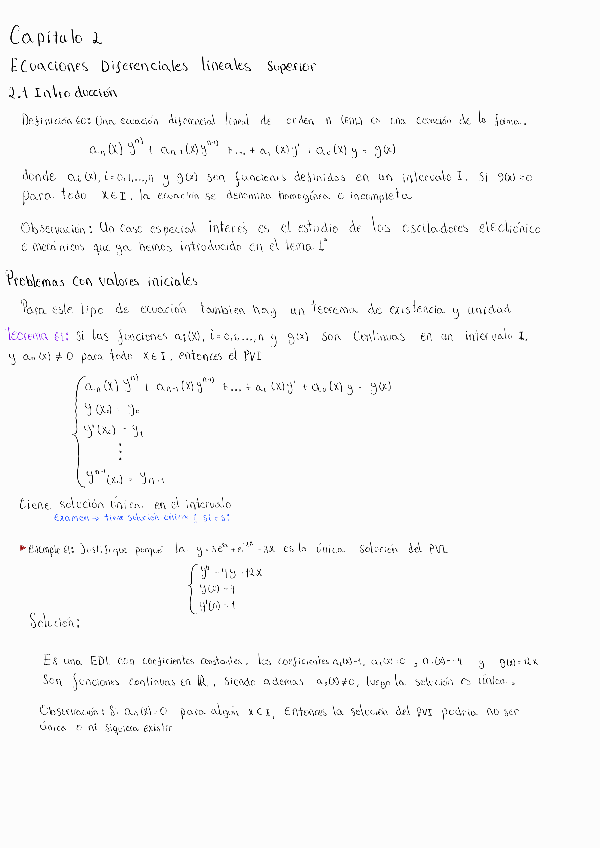 Capítulo 2
Ecuaciones Diferenciales lineales Superior
2.1 Introducción
Definición 60: Una ecuación diferencial lineal de orden n (EDLn) es una ecuación de la forma.
aₙ(x) yⁿ⁾ + aₙ₋₁(x) yⁿ⁻¹⁾ + ... + a₁(x) y' + a₀(x) y = g(x)
donde aᵢ(x), i=0,1,...,n y g(x) son funciones definidas en un intervalo I. Si g(x)=0
para todo x∈I, la ecuación se denomina homogénea o incompleta
Observación: Un caso especial interés es el estudio de los osciladores electrónico
o mecánicos que ya hemos introducido en el tema 1
Problemas con valores iniciales
Para este tipo de ecuación tambien hay un teorema de existencia y unidad
Teorema 61: Si las funciones aᵢ(x), i=0,1,...,n y g(x) son continuas en un intervalo I,
y aₙ(x) ≠ 0 para todo x∈I, entonces el PVI
aₙ(x) yⁿ⁾ + aₙ₋₁(x) yⁿ⁻¹⁾ + ... + a₁(x) y' + a₀(x) y = g(x)
y(x₀) = y₀
y'(x₀) = y₁
⋮
yⁿ⁻¹(x₀) = yₙ₋₁
tiene solución única en el intervalo
Examen → tiene solución única
Ejemplo 61: Justifique porque la y = 3e²ˣ + e⁻²ˣ - 3x es la única solución del PVI
y'' - 4y = 12x
y(0) = 4
y'(0) = 1
Solución:
Es una EDL con coeficientes constantes, los coeficientes a₂(x)=1, a₁(x)=0, a₀(x)=-4 y g(x)=12x
Son funciones continuas en ℝ, siendo además a₂(x)≠0, luego la solución es única.
Observación: Si aₙ(x)=0 para algún x∈I, Entonces la solución del PVI podría no ser
única o ni siquiera existir